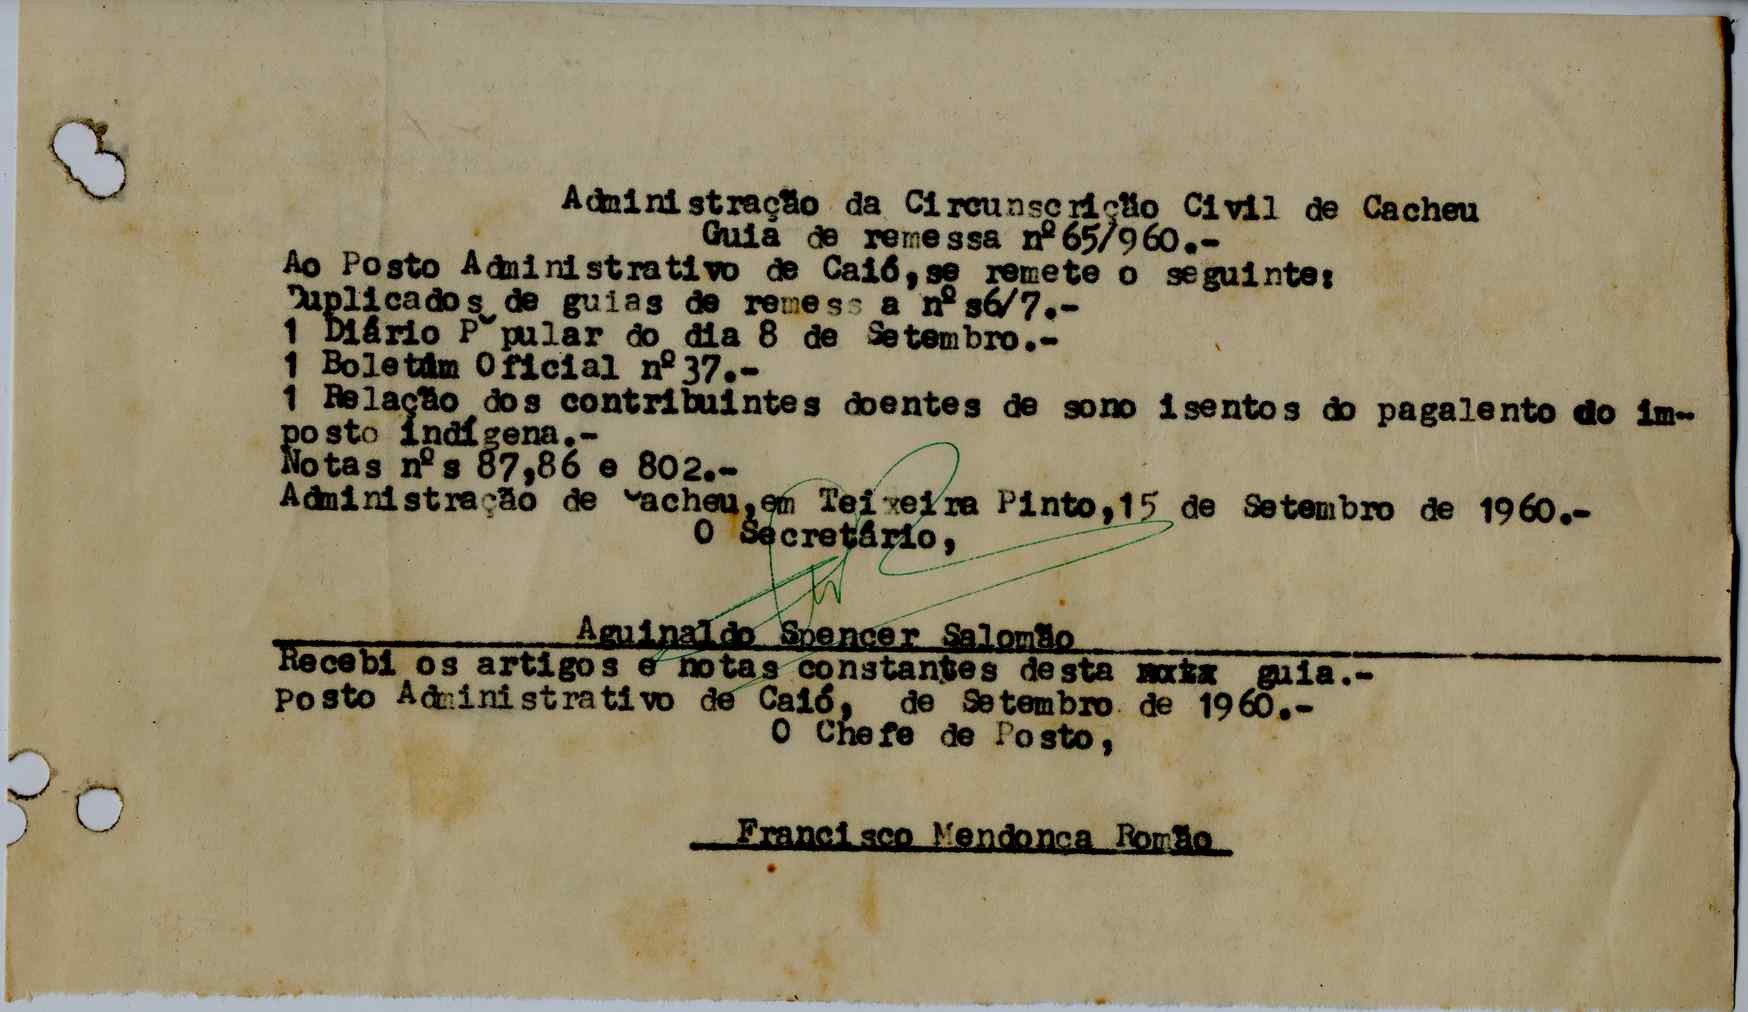 Administração da Circunscrição Civil de Cacheu
Guia de remessa nº65/960.-
Ao Posto Administrativo de Caió,se remete o seguinte:
Duplicados de guias de remess a nº s6/7.-
1 Diário Popular do dia 8 de Setembro.-
1 Boletim Oficial nº37.-
1 Relação dos contribuintes doentes de sono isentos do pagalento do im-
posto indígena.-
Notas nº s 87,86 e 802.-
Administração de Cacheu,em Teixeira Pinto,15 de Setembro de 1960.-
O Secretário,
Aguinaldo Spencer Salomão
Recebi os artigos e notas constantes desta guia.-
Posto Administrativo de Caió, de Setembro de 1960.-
O Chefe de Posto,
Francisco Mendonça Romão